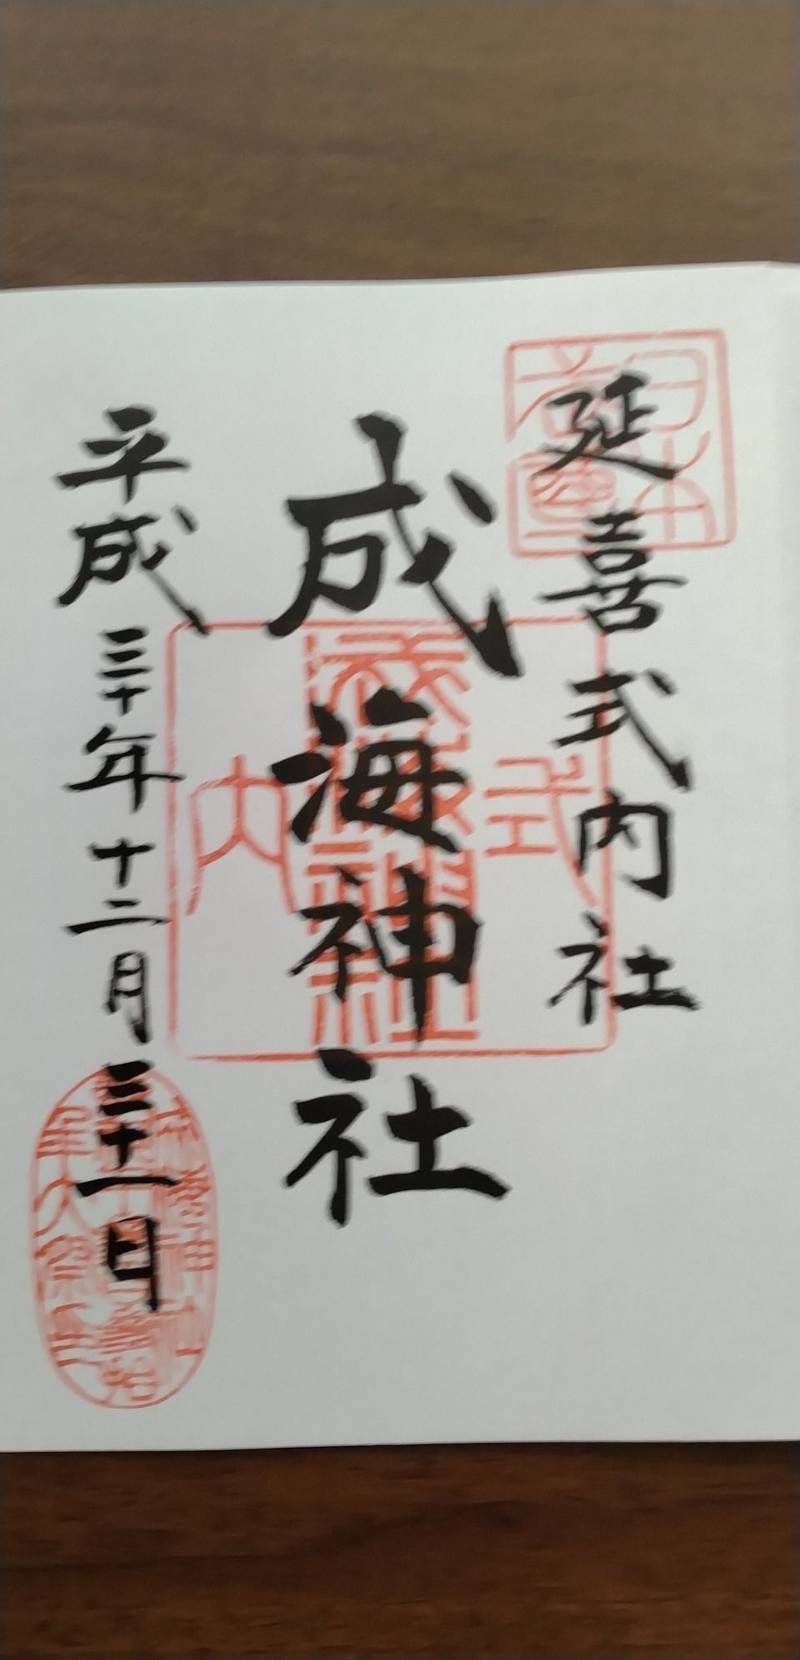 延喜式内社
成海神社
平成三十年十二月三十一日
式
内
成海神社